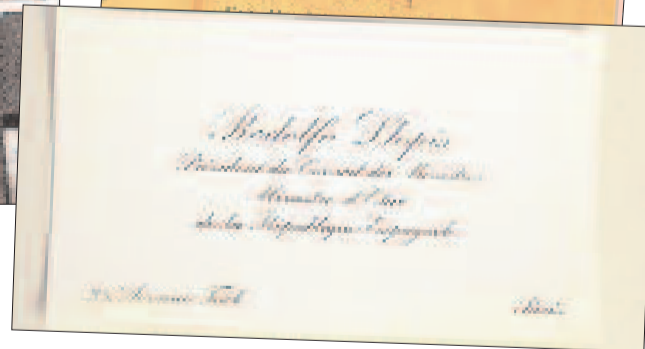 Rodolfo Llopis
Président du Conseil des Ministres
Ministre d'Etat
de la République Espagnole
Avenue Foch
Paris